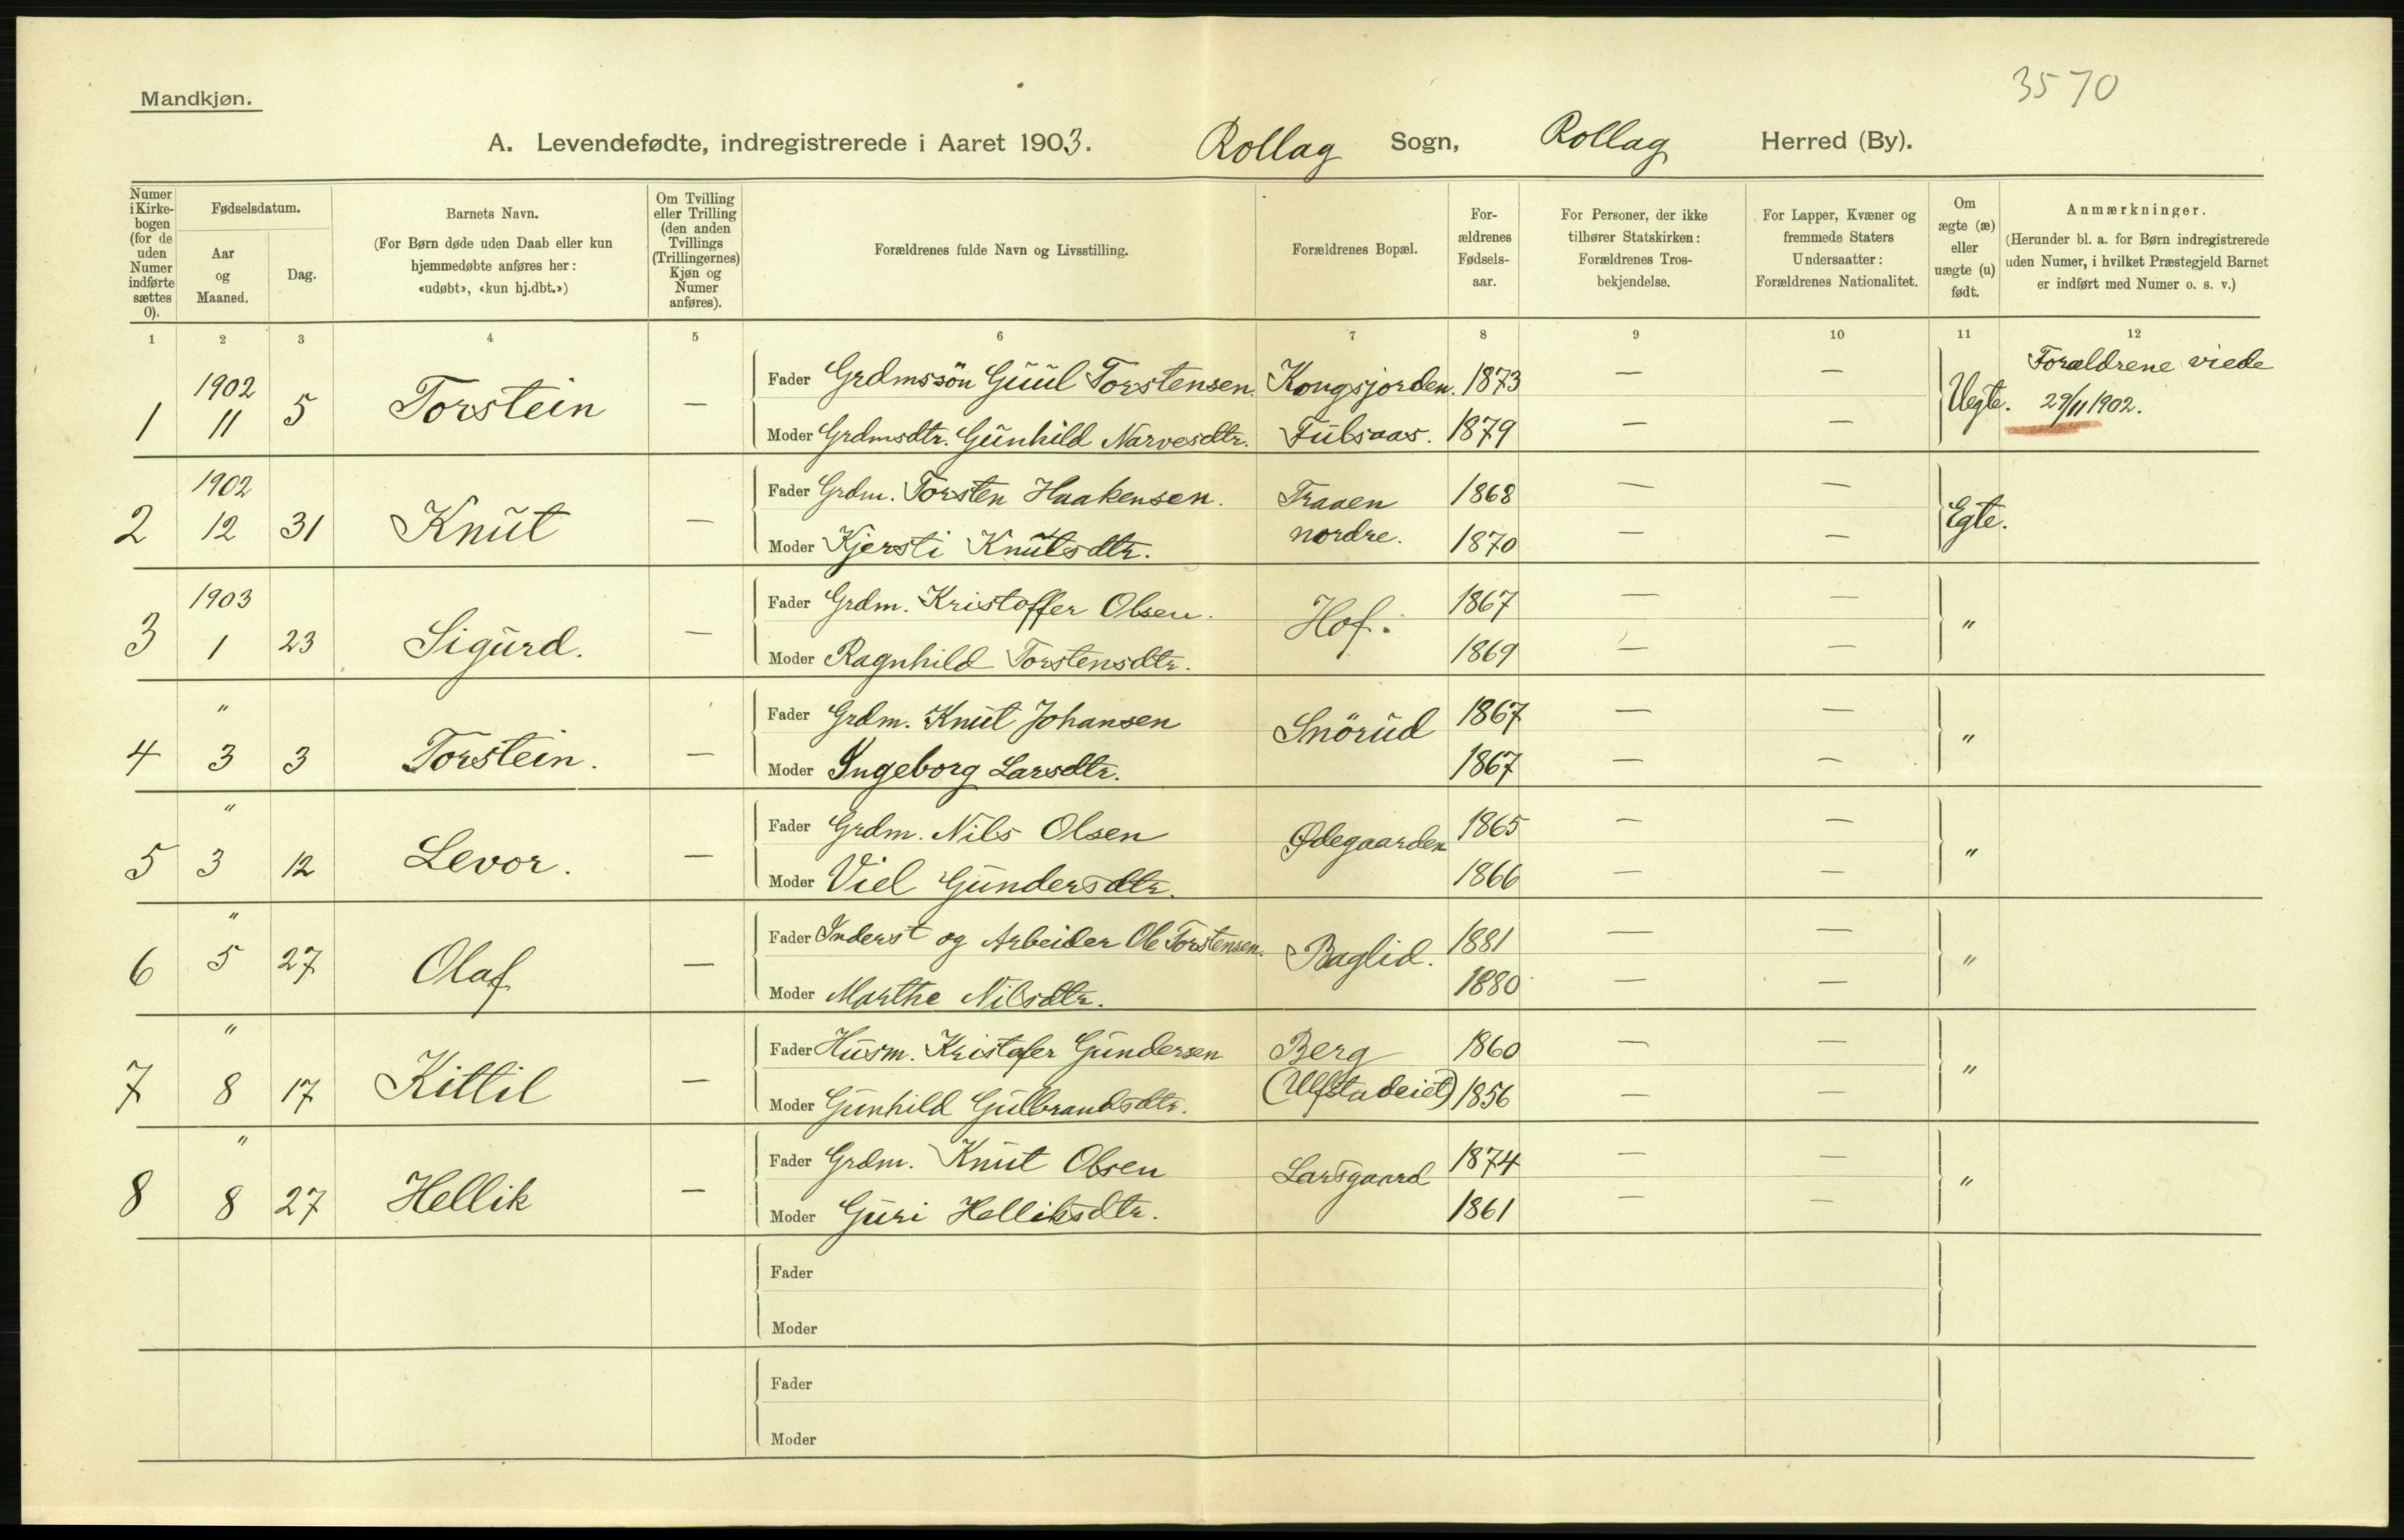 3570
Mandkjøn.
A. Levendefødte, indregistrerede i Aaret 1903. Rollag Sogn, Rollag Herred (By).
Numer i Kirkebogen (for de uden Numer indførte sættes 0).
Fødselsdatum.
Aar og Maaned.
Dag.
Barnets Navn.
(For Børn døde uden Daab eller kun
hjemmedøbte anføres her:
«udøbt», «kun hj.dbt.»)
Om Tvilling
eller Trilling
(den anden
Tvillings
(Trillingernes)
Kjøn og
Numer
anføres).
Forældrenes fulde Navn og Livsstilling.
Forældrenes Bopæl.
For-
ældrenes
Fødsels-
aar.
For Personer, der ikke
tilhører Statskirken:
Forældrenes Tros-
bekjendelse.
For Lapper, Kvæner og
fremmede Staters
Undersaatter:
Forældrenes Nationalitet.
Om
ægte (æ)
eller
uægte (u)
født.
Anmærkninger.
(Herunder bl. a. for Børn indregistrerede
uden Numer, i hvilket Præstegjeld Barnet
er indført med Numer o. s. v.)
1 2 3 4 5 6 7 8 9 10 11 12
1902
1 11 5 Torstein —
Fader Grdmssön Guul Torstensen. Kongsjorden. 1873 — —
Moder Grdmsdtr. Gunhild Narvesdtr. Fulsaas. 1879 — —
Uegte. Forældrene viede
29/11 1902.
1902
2 12 31 Knut —
Fader Grdm. Torsten Haakensen. Traaen 1868 — —
Moder Kjersti Knutsdtr. nordre. 1870 — —
Egte.
1903
3 1 23 Sigurd. —
Fader Grdm. Kristoffer Olsen. Hof. 1867 — —
Moder Ragnhild Torstensdtr. 1869 — —
"
"
4 3 3 Torstein. —
Fader Grdm. Knut Johansen Snörud 1867 — —
Moder Ingeborg Larsdtr. 1867 — —
"
"
5 3 12 Levor. —
Fader Grdm. Nils Olsen Ødegaarden 1865 — —
Moder Viel Gundersdtr. 1866 — —
"
"
6 5 27 Olaf —
Fader Inderst og Arbeider Ole Torstensen. Baglid. 1881 — —
Moder Marthe Nilsdtr. 1880 — —
"
"
7 8 17 Kittil —
Fader Husm. Kristofer Gundersen Berg 1860 — —
Moder Gunhild Gulbrandsdtr. (Ulfstadeiet) 1856 — —
"
"
8 8 27 Hellik —
Fader Grdm. Knut Olsen Larsgaard 1874 — —
Moder Guri Helliksdtr. 1861 — —
"
Fader
Moder
Fader
Moder